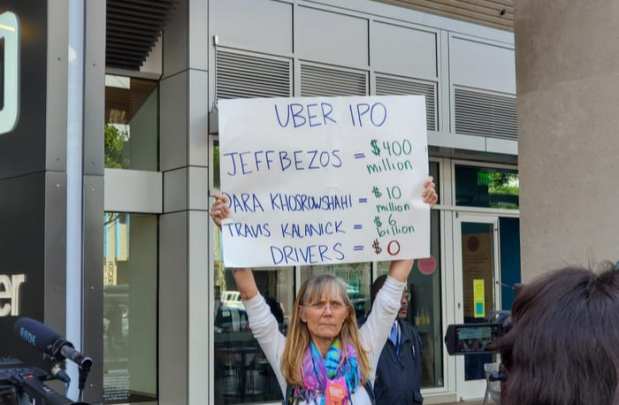 UBER IPO
JEFF BEZOS = $400 million
DARA KHOSROWSHAHI = $10 million
TRAVIS KALANICK = $6 billion
DRIVERS = $0
er